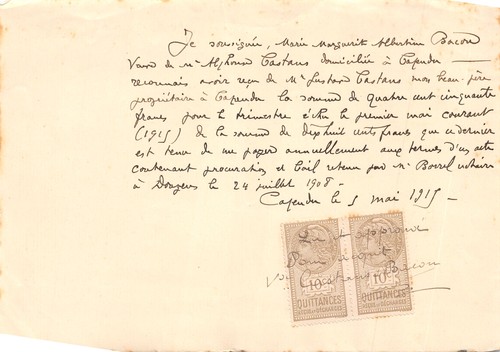 Je soussignée, Marie Marguerit Albertine Bacou
Veuve de Mr Alphonse Castans domiciliée à Capendu
reconnais avoir reçu de Mr Gustave Castans mon beau-père
propriétaire à Capendu la somme de Quatre cent cinquante
francs pour le trimestre échu le premier mai courant
(1915) de la somme de dix huit cents francs que ce dernier
est tenu de me payer annuellement aux termes d'un acte
contenant procuration et bail retenu par Mr notaire
à Douzens le 24 juillet 1908 -
Capendu le 5 mai 1915 -
Lu et approuvé
Pour acquit
Vve Castans Bacou
10c 10c
QUITTANCES QUITTANCES
REÇUS ET DÉCHARGES REÇUS ET DÉCHARGES